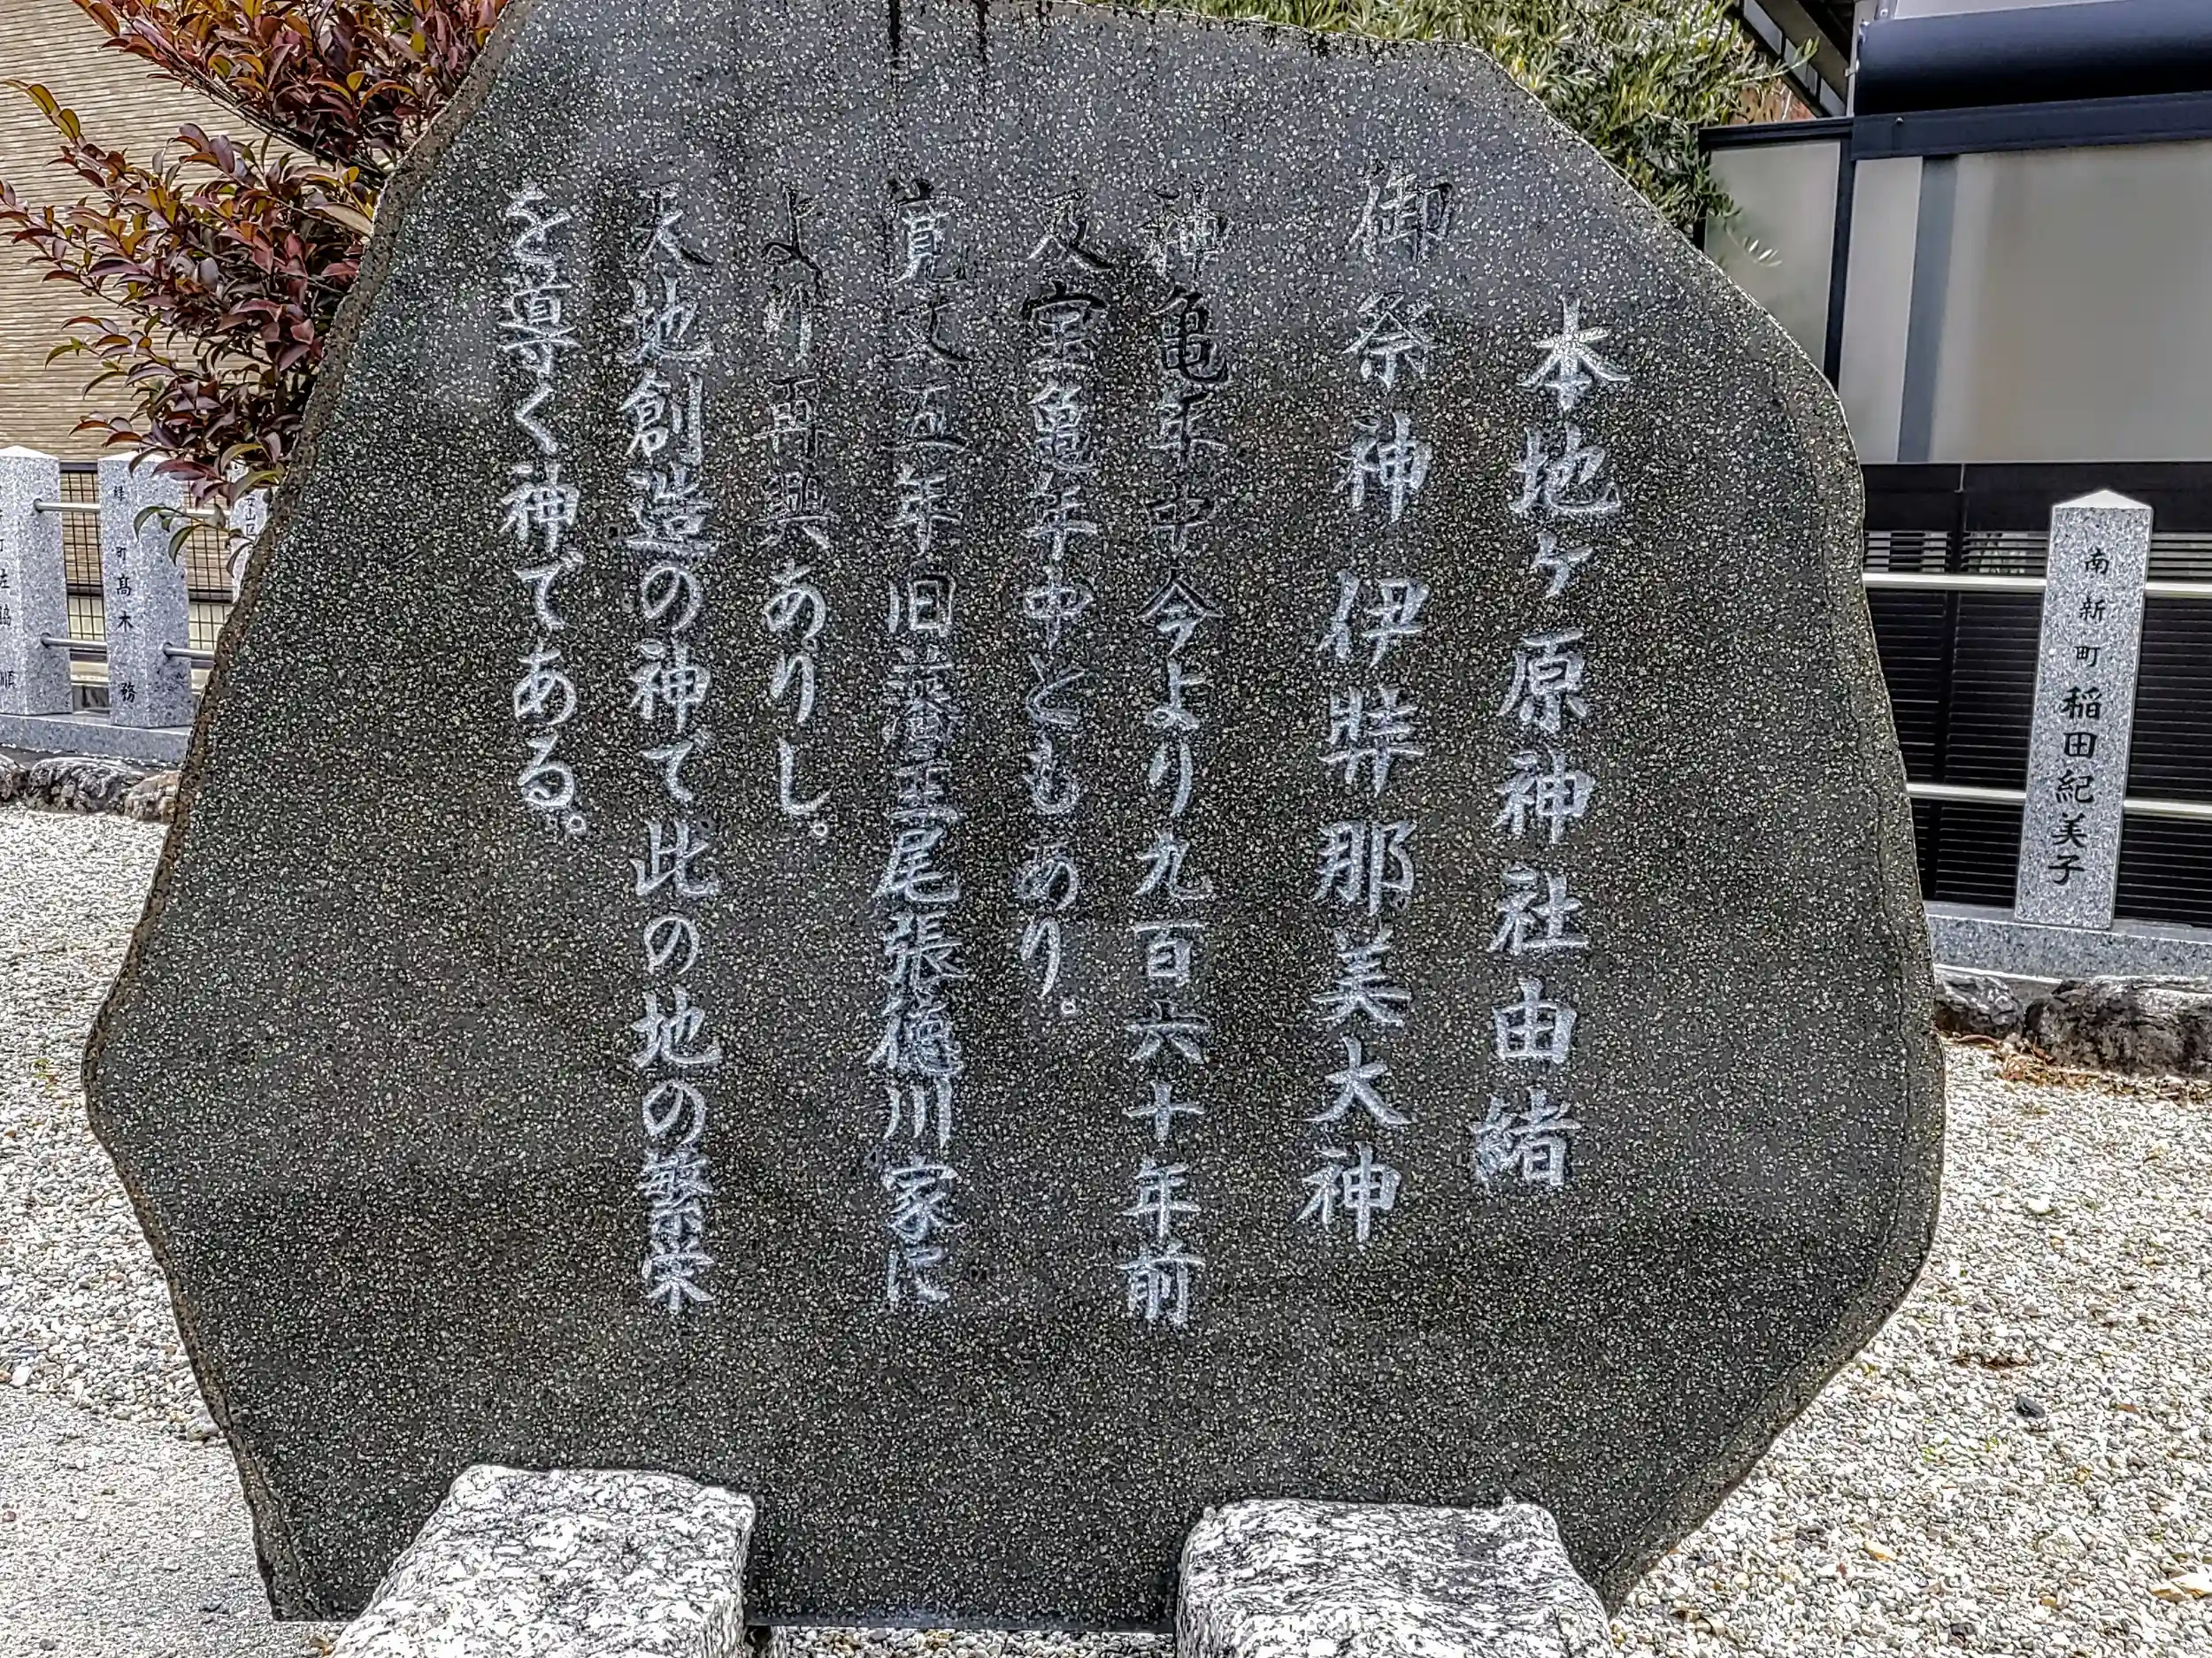 本地ヶ原神社由緒
御祭神 伊弉那美大神
神亀年中今より九百六十年前
及宝亀年中ともあり。
寛文五年旧藩主尾張徳川家に
より再興ありし。
天地創造の神で此の地の繁栄
を導く神である。
南新町 稲田紀美子
町 髙木 務